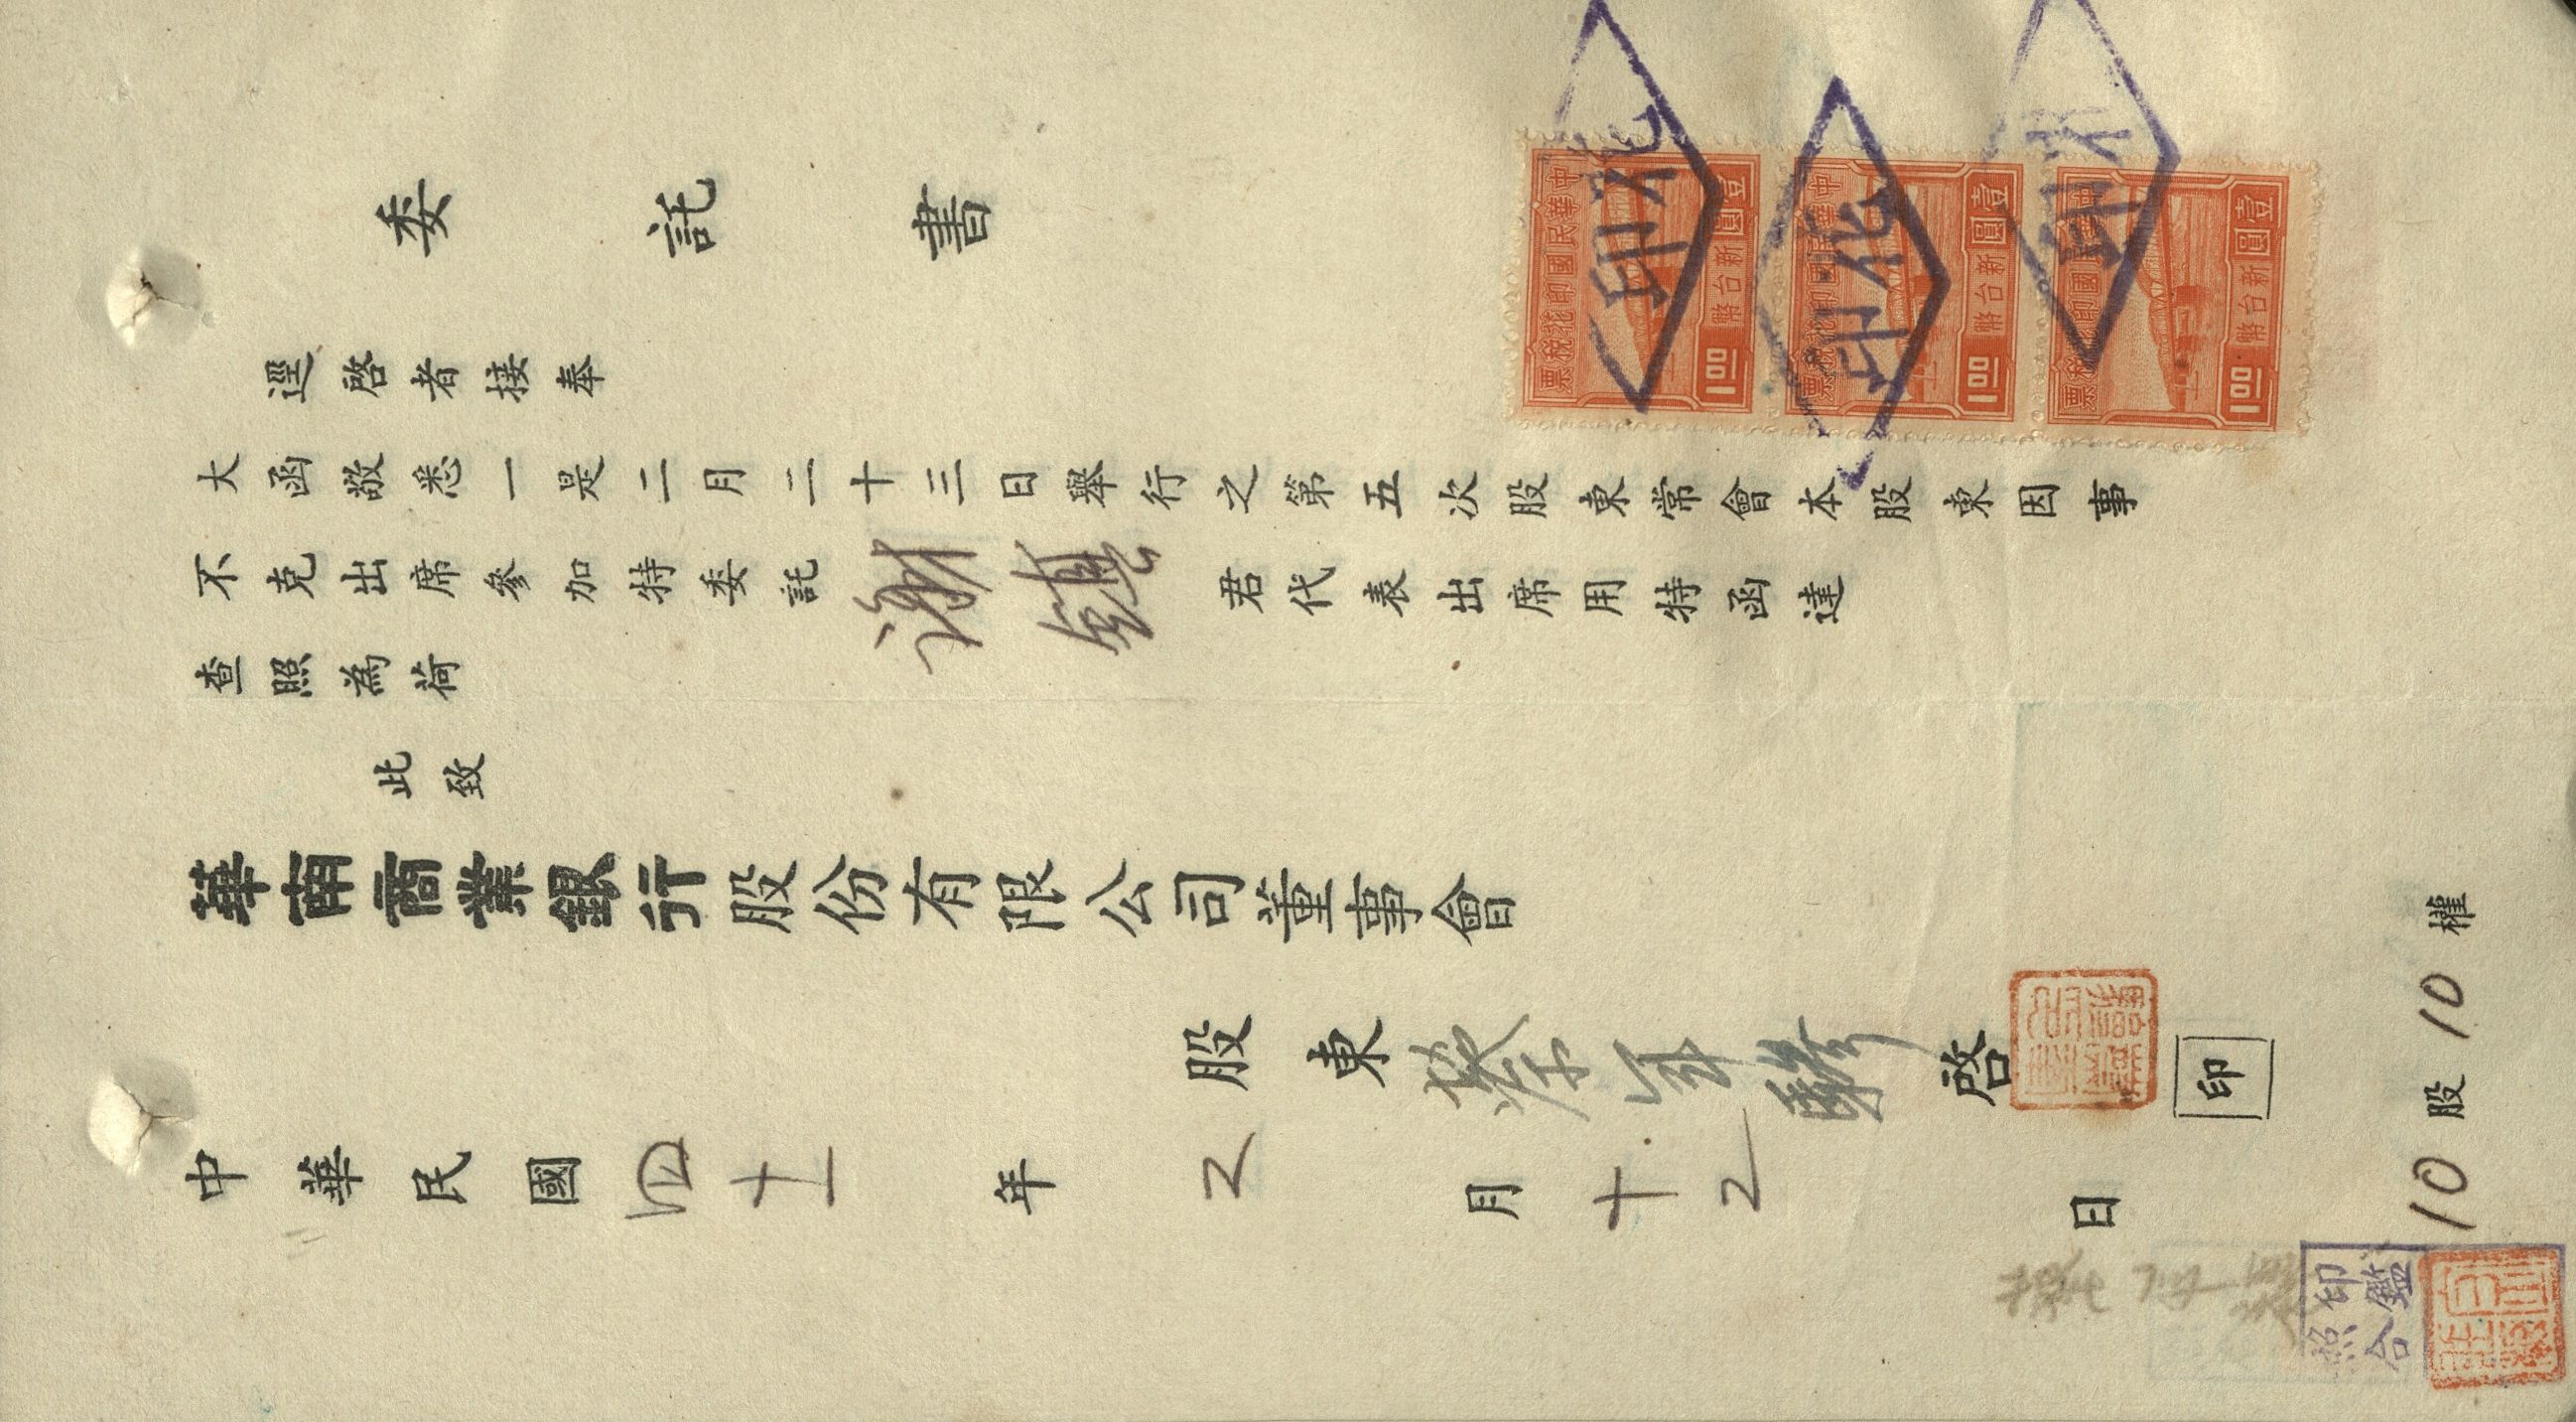 委託書
逕啓者接奉
大函敬悉一是二月二十三日舉行之第五次股東常會本股東因事
不克出席參加特委託謝鎮君代表出席用特函達
查照為荷
此致
華南商業銀行股份有限公司董事會
股東蔡年啓 印
中華民國四十一年2月十2日
10股10權
印鑑
照合
中華民國印花稅票
壹圓
新台幣
1.00
印花
中華民國印花稅票
壹圓
新台幣
1.00
印花
中華民國印花稅票
壹圓
新台幣
1.00
印花